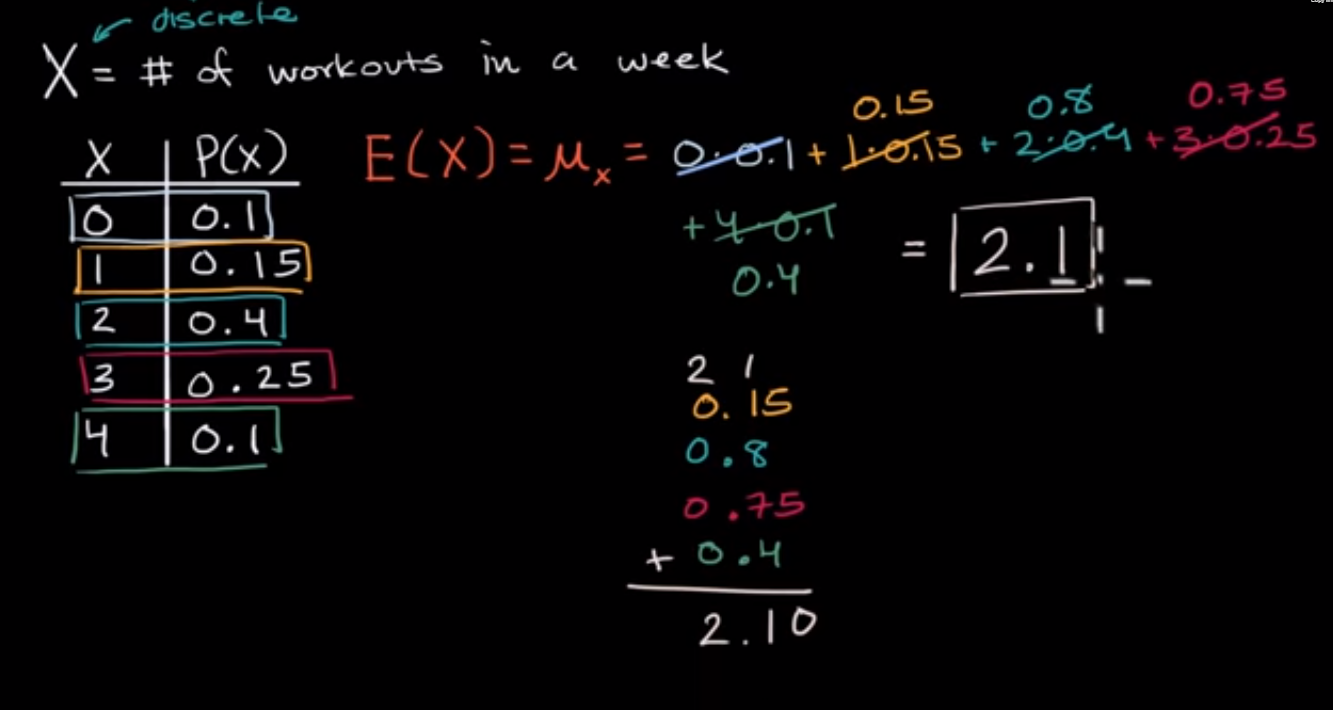 discrete
X = # of workouts in a week
0.15 0.8 0.75
X P(X) E(X) = μx = 0·0.1 + 1·0.15 + 2·0.4 + 3·0.25
0 0.1 + 4·0.1 = 2.1
1 0.15 0.4
2 0.4
3 0.25 2 1
0.15
4 0.1 0.8
0.75
+ 0.4
2.10